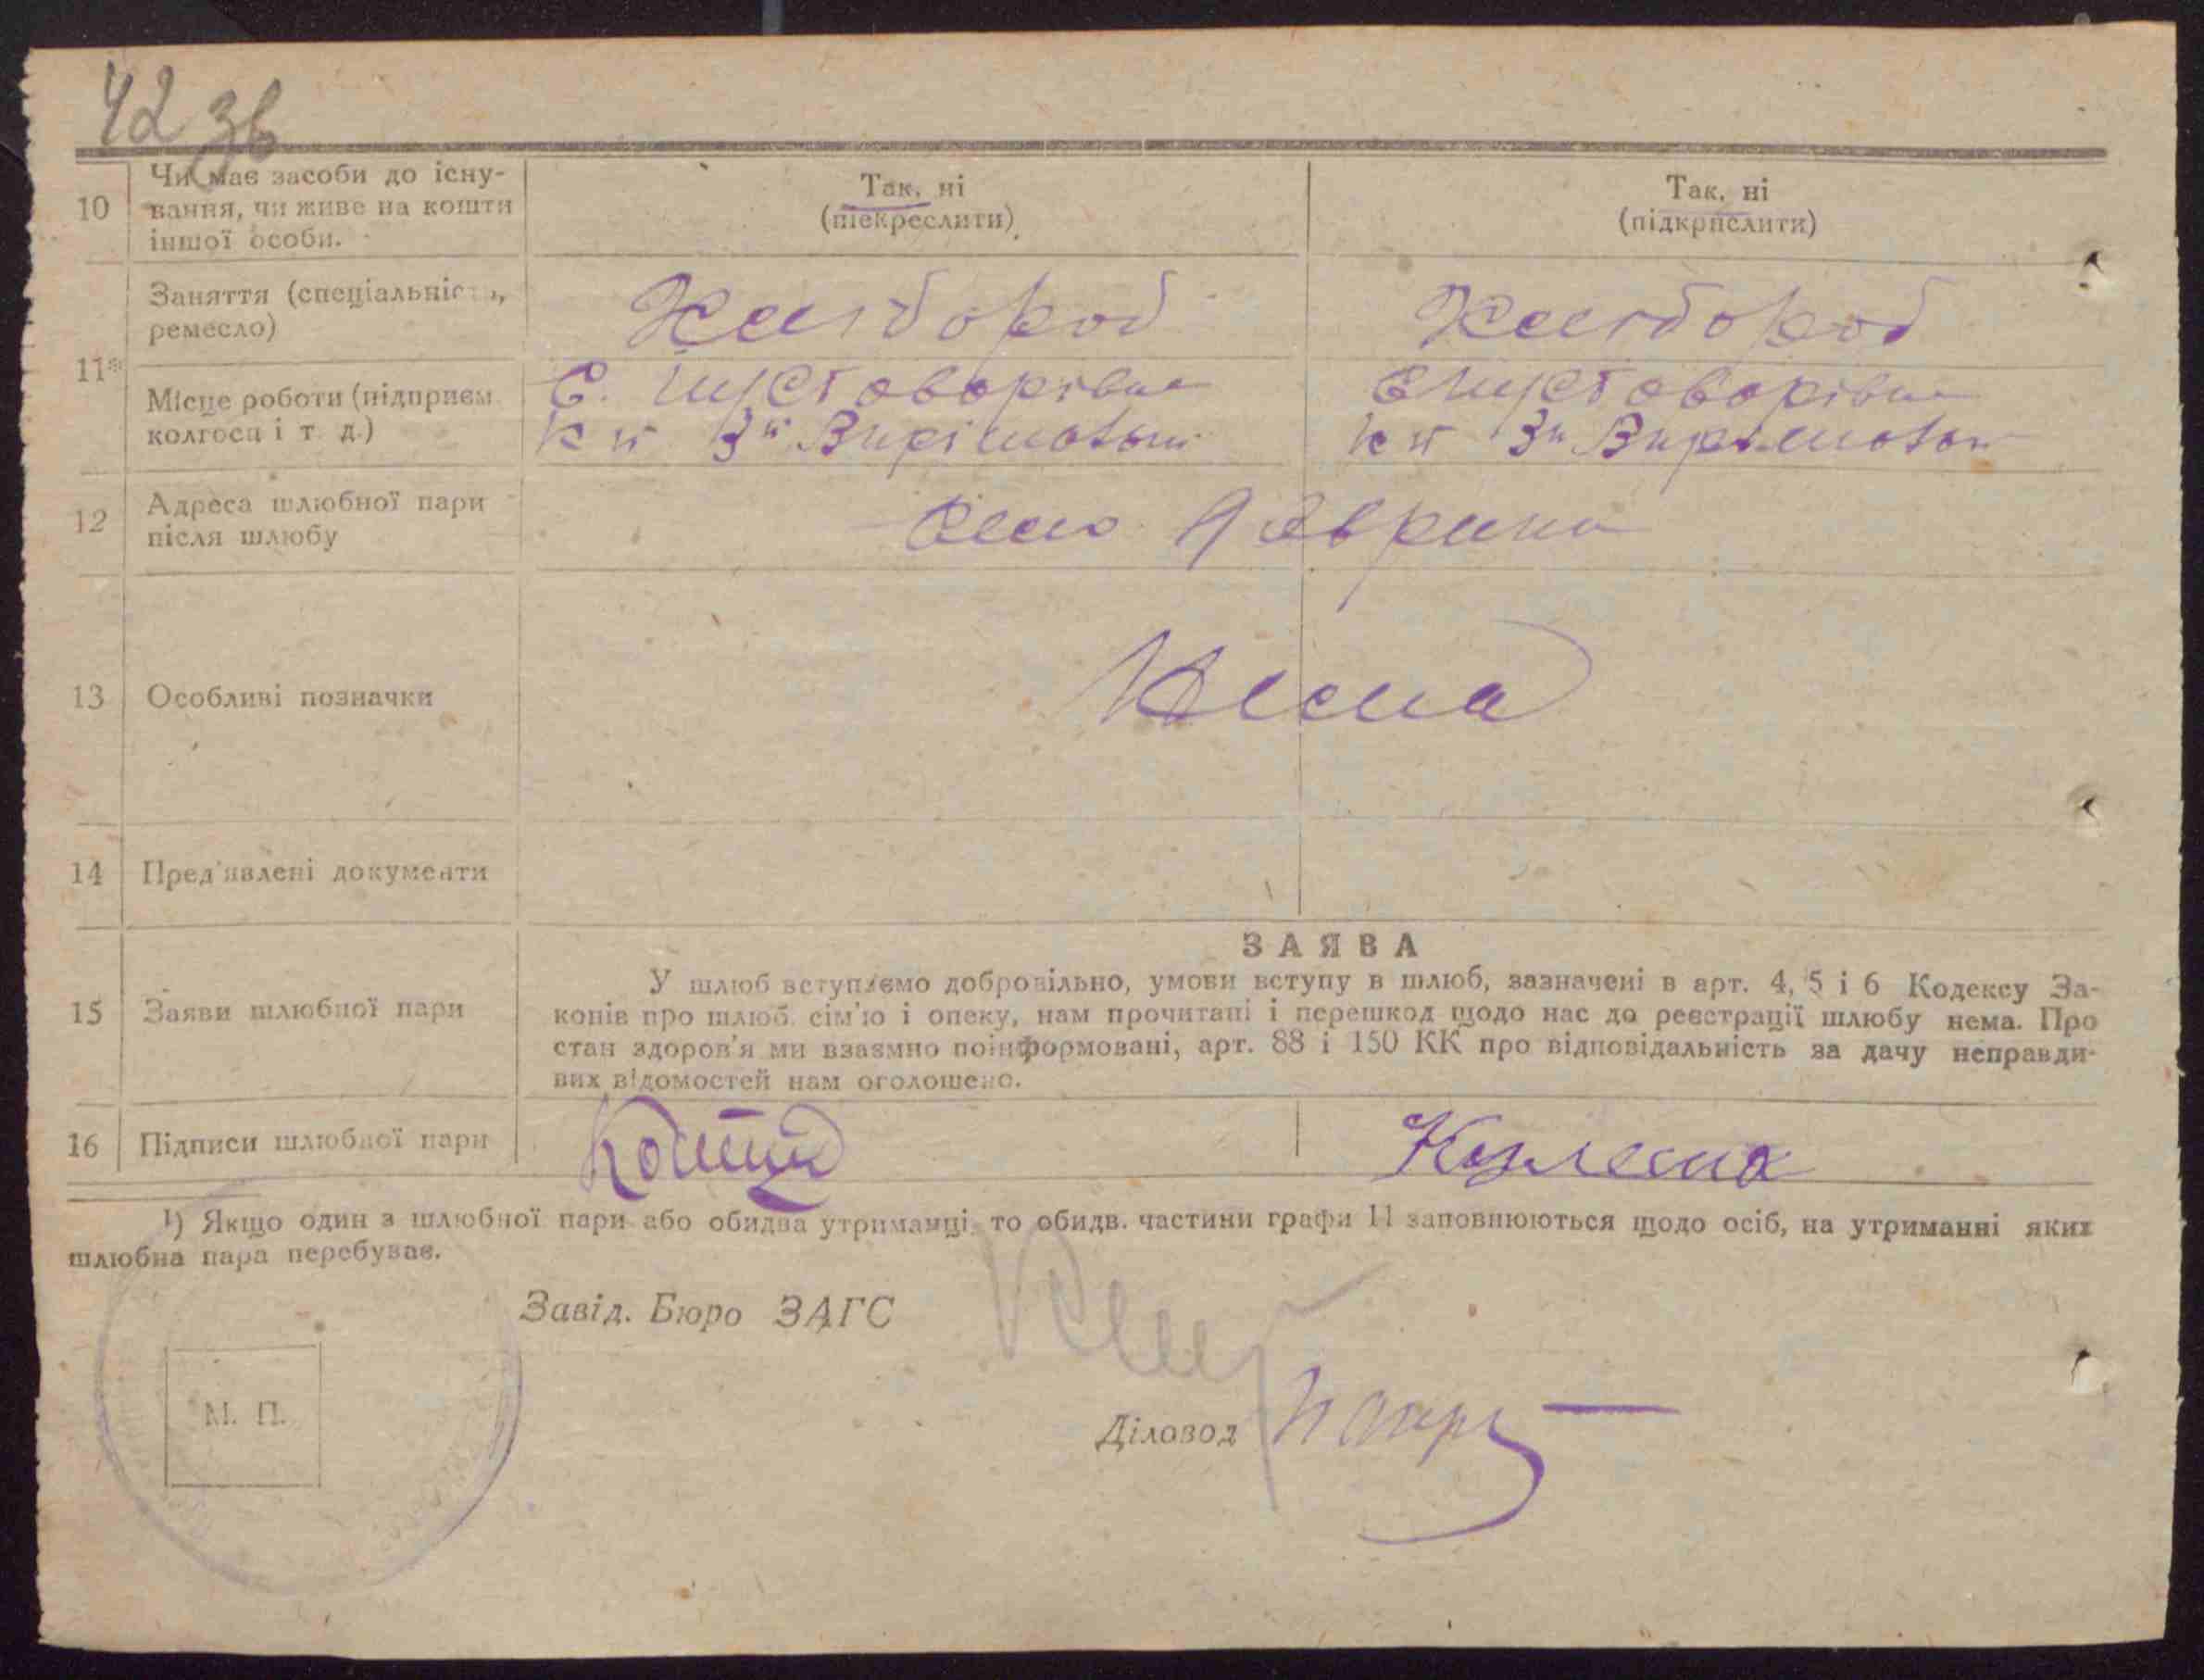 42 зв
10
Чи має засоби до існу-
вання, чи живе на кошти
іншої особи.
Так, ні
(піекреслити)
Так, ні
(підкрпслити)
11*
Заняття (спеціальність,
ремесло)
Хлібороб
Хлібороб
Місце роботи (підприєм.
колгосп і т. д.)
с. Пустоварівка
с Пустоварівка
12
Адреса шлюбної пари
після шлюбу
село
13
Особливі позначки
Нема
14
Пред'явлені документи
15
Заяви шлюбної пари
ЗАЯВА
У шлюб вступаємо добровільно, умови вступу в шлюб, зазначені в арт. 4, 5 і 6 Кодексу За-
конів про шлюб, сім'ю і опеку, нам прочитані і перешкод щодо нас до реєстрації шлюбу нема. Про
стан здоров'я ми взаємно поінформовані, арт. 88 і 150 КК про відповідальність за дачу неправди-
вих відомостей нам оголошено.
16
Підписи шлюбної пари
¹) Якщо один з шлюбної пари або обидва утриманці, то обидв. частини графи 11 заповнюються щодо осіб, на утриманні яких
шлюбна пара перебуває.
Завід. Бюро ЗАГС
М. П.
Діловод